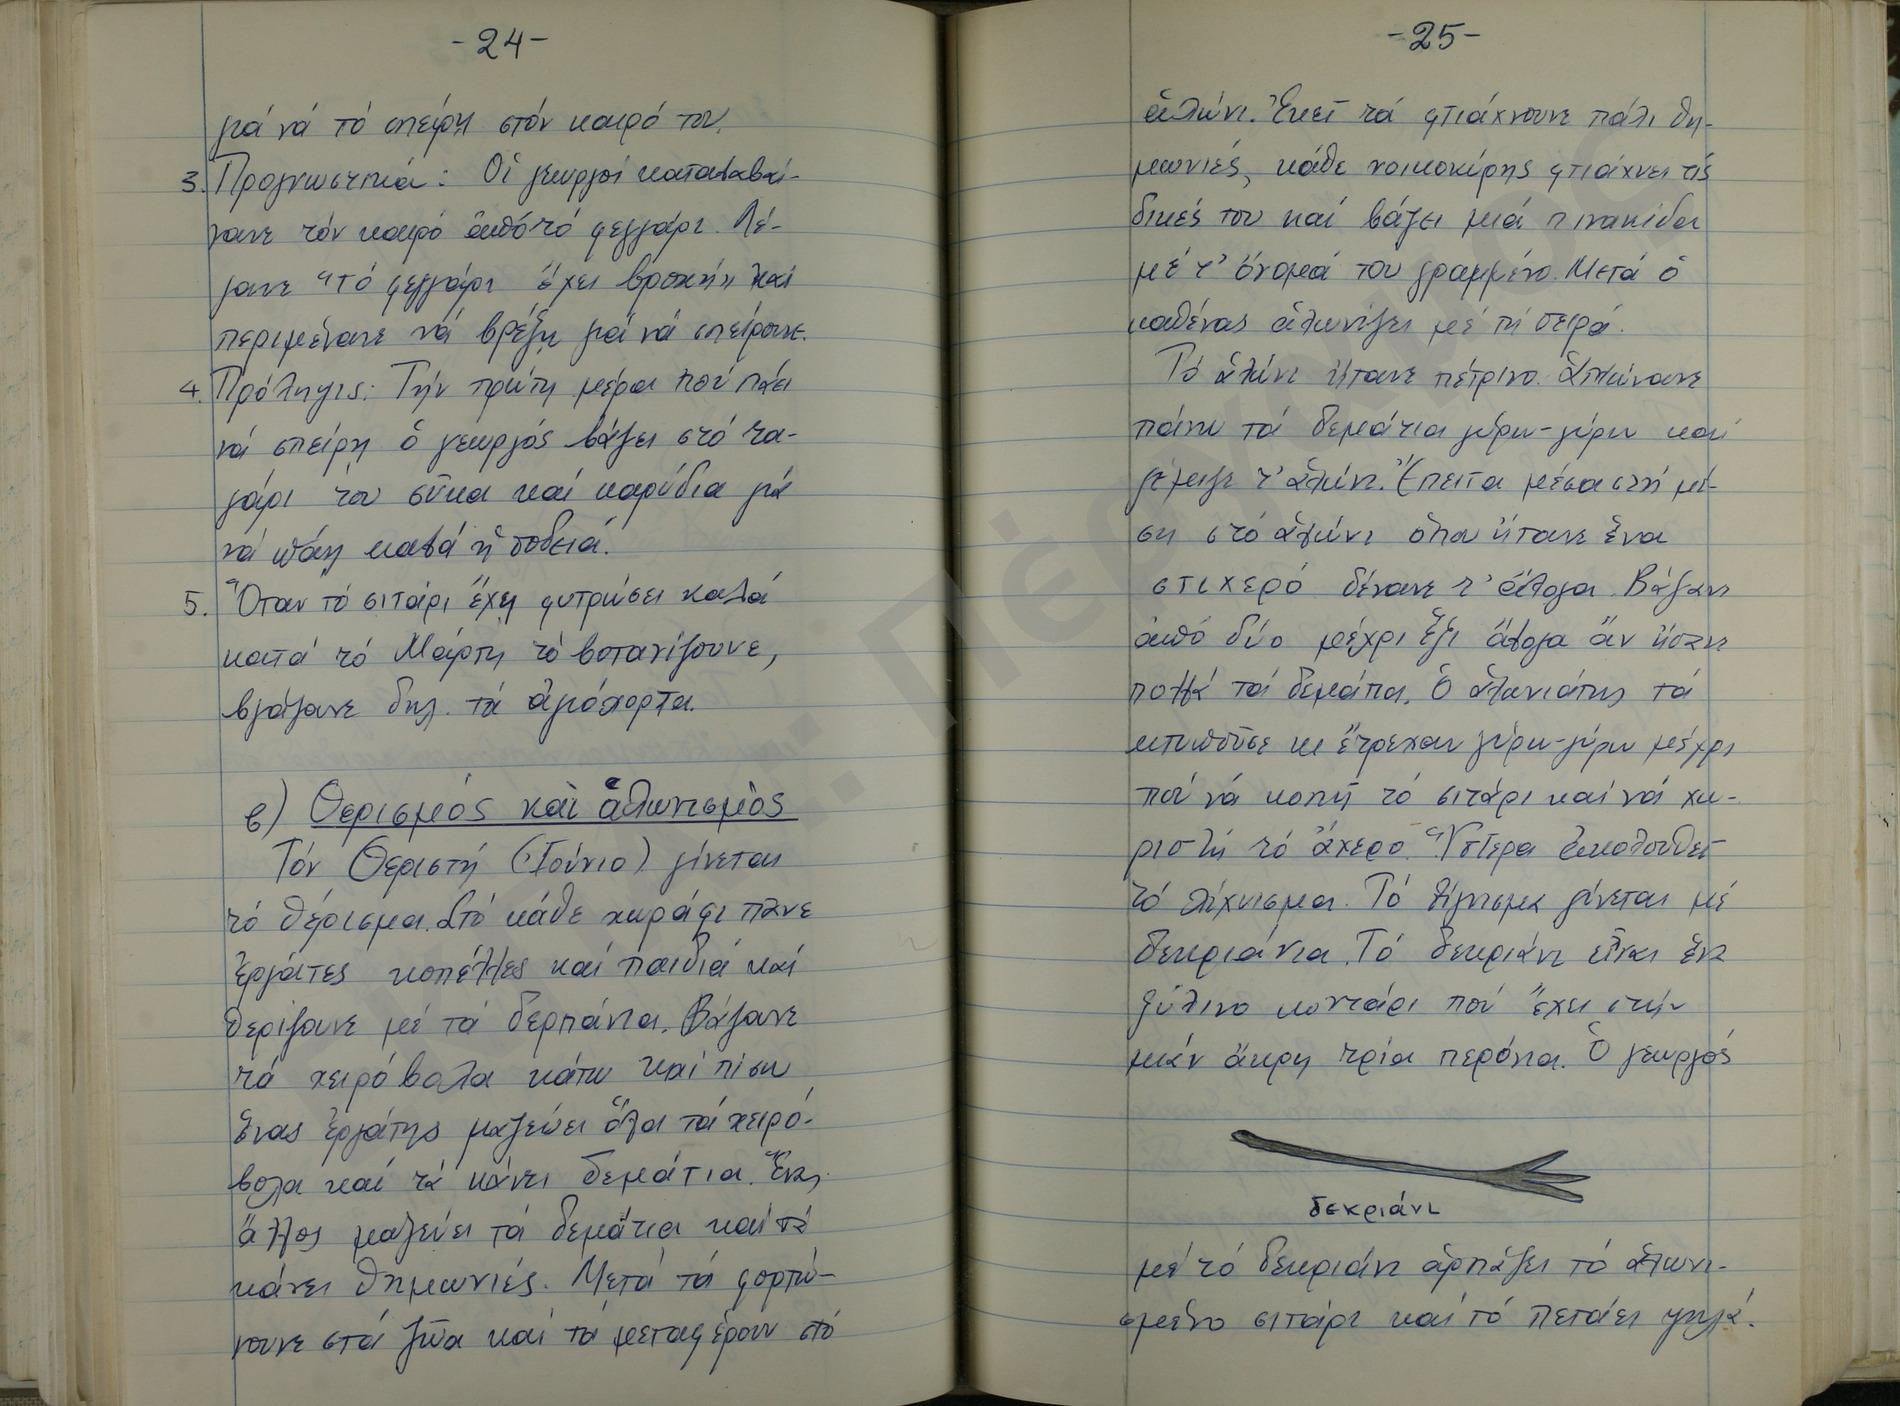 -24-
γιά νά τό σπείρη στόν καιρό του.
3. Προγνωστικά: Οἱ γεωργοί καταλαβαί-
νανε τόν καιρό ἀπό τό φεγγάρι. Λέ-
γανε "τό φεγγάρι ἔχει βροχή" καί
περιμένανε νά βρέξη γιά νά σπείρουνε.
4. Πρόληψις: Τήν πρώτη μέρα πού πάει
νά σπείρη ὁ γεωργός βάζει στό τα-
γάρι του σῦκα καί καρύδια γιά
νά πάη καλά ἡ σοδειά.
5. Ὅταν τό σιτάρι ἔχη φυτρώσει καλά
κατά τό Μάρτη τό βοτανίζουνε,
βγάζουνε δηλ. τά ἀγριόχορτα.
β) Θερισμός καὶ ἁλωνισμὸς
Τόν Θεριστή (Ἰούνιο) γίνεται
τό θέρισμα. Στό κάθε χωράφι πᾶνε
ἐργάτες κοπέλλες καί παιδιά καί
θερίζουνε μέ τά δερπάνια. Βάζουνε
τά χειρόβολα κάτω καί πίσω
ἕνας ἐργάτης μαζεύει ὅλα τά χειρό-
βολα καί τά κάνει δεμάτια. Ἕνας
ἄλλος μαζεύει τά δεμάτια καί τά
κάνει θημωνιές. Μετά τά φορτώ-
νουνε στά ζῶα καί τά μεταφέρουν στό
-25-
ἁλώνι. Ἐκεῖ τά φτιάχνουνε πάλι θη-
μωνιές, κάθε νοικοκύρης φτιάχνει τίς
δικές του καί βάζει μιά πινακίδα
μέ τ' ὄνομά του γραμμένο. Μετά ὁ
καθένας ἁλωνίζει μέ τή σειρά.
Τό ἁλώνι ἤτανε πέτρινο. Ἁπλώνανε
πάνω τά δεμάτια γύρω-γύρω καί
γέμιζε τ' ἁλώνι. Ἔπειτα μέσα στή μέ-
ση στό ἁλώνι ὅπου ἤτανε ἕνα
στιχερό δένανε τ' ἄλογα. Βάζανε
ἀπό δύο μέχρι ἕξι ἄλογα ἄν ἤσαν
πολλά τά δεμάτια. Ὁ ἁλωνιάτης τά
κτυποῦσε κι ἔτρεχαν γύρω-γύρω μέχρι
πού νά κοπῆ τό σιτάρι καί νά χω-
ριστῆ τό ἄχερο. Ὕστερα ἀκολουθεῖ
τό λίχνισμα. Τό λίχνισμα γίνεται μέ
δεκριάνια. Τό δεκριάνι εἶναι ἕνα
ξύλινο κοντάρι πού ἔχει στήν
μιάν ἄκρη τρία περόνια. Ὁ γεωργός
δεκριάνι
μέ τό δεκριάνι ἁρπάζει τό ἁλωνι-
σμένο σιτάρι καί τό πετάει ψηλά.